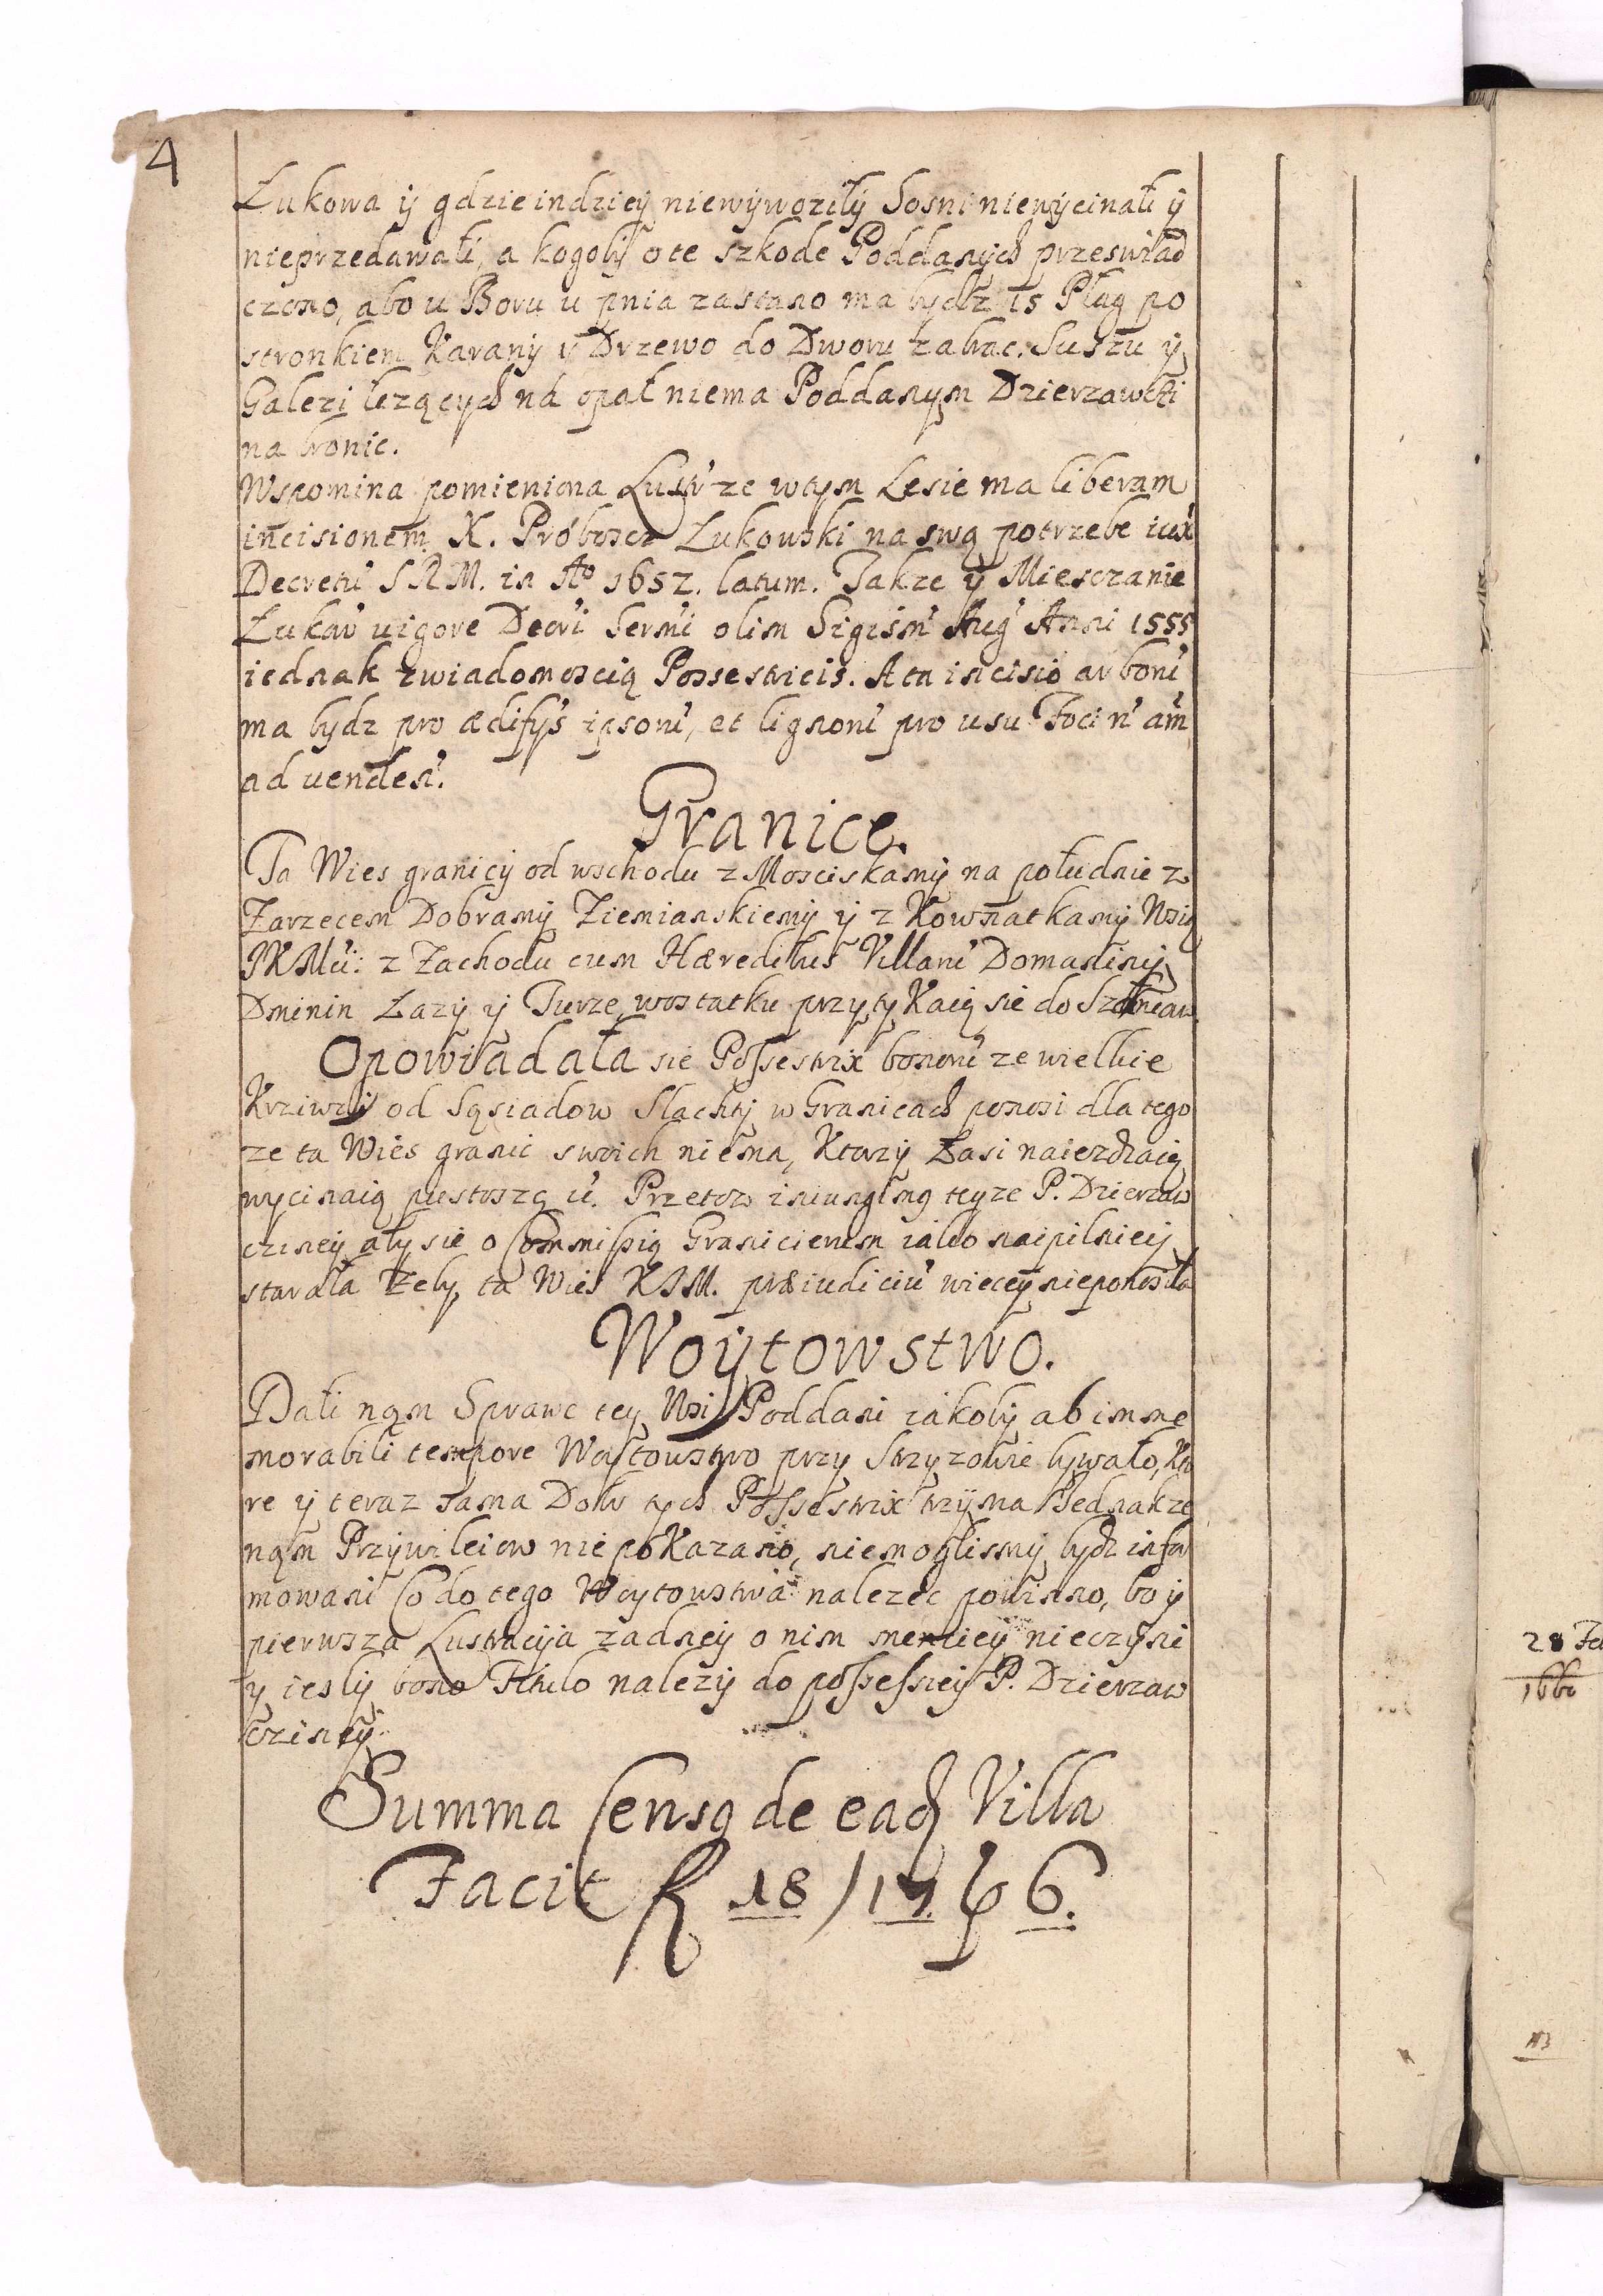 4
Łukowa ÿ gdzie indzieÿ niewÿwozilÿ Sosni niewÿcinali ÿ
nieprzedawali, a kogobÿ o te szkode Poddanÿch przeswiad
czono, abo u Boru u pnia zastano ma bÿdz 15 Plag po
stronkiem Karanÿ ÿ Drzewo do Dworu zabrac. Suszu ÿ
Galezi lezących na opał niema Poddanym Dzierzawczi
na bronic.
Wspomina pomieniona Lustr ze wtym Lesie ma liberam
incisionem X. Próboscz Łukowski na swą potrzebe iux
Decretu S R M. in Aº 1652. latum. Takze ÿ Miesczanie
Łukow uigore Decri Sermi olim Sigism Aug Anni 1555
iednak zwiadomoscią Possestricis. A ta incisio arboru
ma bydz pro ædifys ipsoru, et lignoru pro usu Foci n am
ad uenden.
Granice.
Ta Wies granicÿ od wschodu z Mosciskamÿ na południe z
Zarzecem Dobramÿ Ziemianskiemÿ ÿ z Kownatkamÿ Wsią
JKMci: z Zachodu cum Hæredibus Villaru Domaninÿ
Dminin Łazÿ ÿ Turze, wostatku przytykaią sie do
Opowiadała sie Possestrix bonoru ze wielkie
Krziwdÿ od Sąsiadow Slachtÿ w Granicach ponosi dla tego
ze ta Wies granic swoich niema, Ktorzÿ Lasi naiezdzaią
wycinaią pustoszą Przetoz iniungimg teyze P. Dzierzaw
czineÿ abÿ sie o Commissią Granicierum iako naipilnieÿ
starała Zeby ta Wies KJM. præiudiciu wieceÿ nieponosiła
Woÿtowstwo.
Dali nąm Sprawe teÿ Wsi Poddani iakobÿ ab imme
morabili tempore Woytowstwo przy Stryzowie bywało, Kto
re ÿ teraz sama Dobr tych Possestrix trzÿma Jednakze
nąm Przÿwileiow niepokazano, niemoglismÿ bydz infor
mowani Co do tego Woytowstwa nalezec powinno, bo ÿ
pierwsza Lustracÿia zadneÿ o nim mentieÿ nieczÿni
ÿ ieslÿ bono Titulo nalezÿ do possessieÿ P. Dzierzaw
czineÿ.
Summa Censg de eadem Villa
Facit 18 / 6.
28 Fe
166